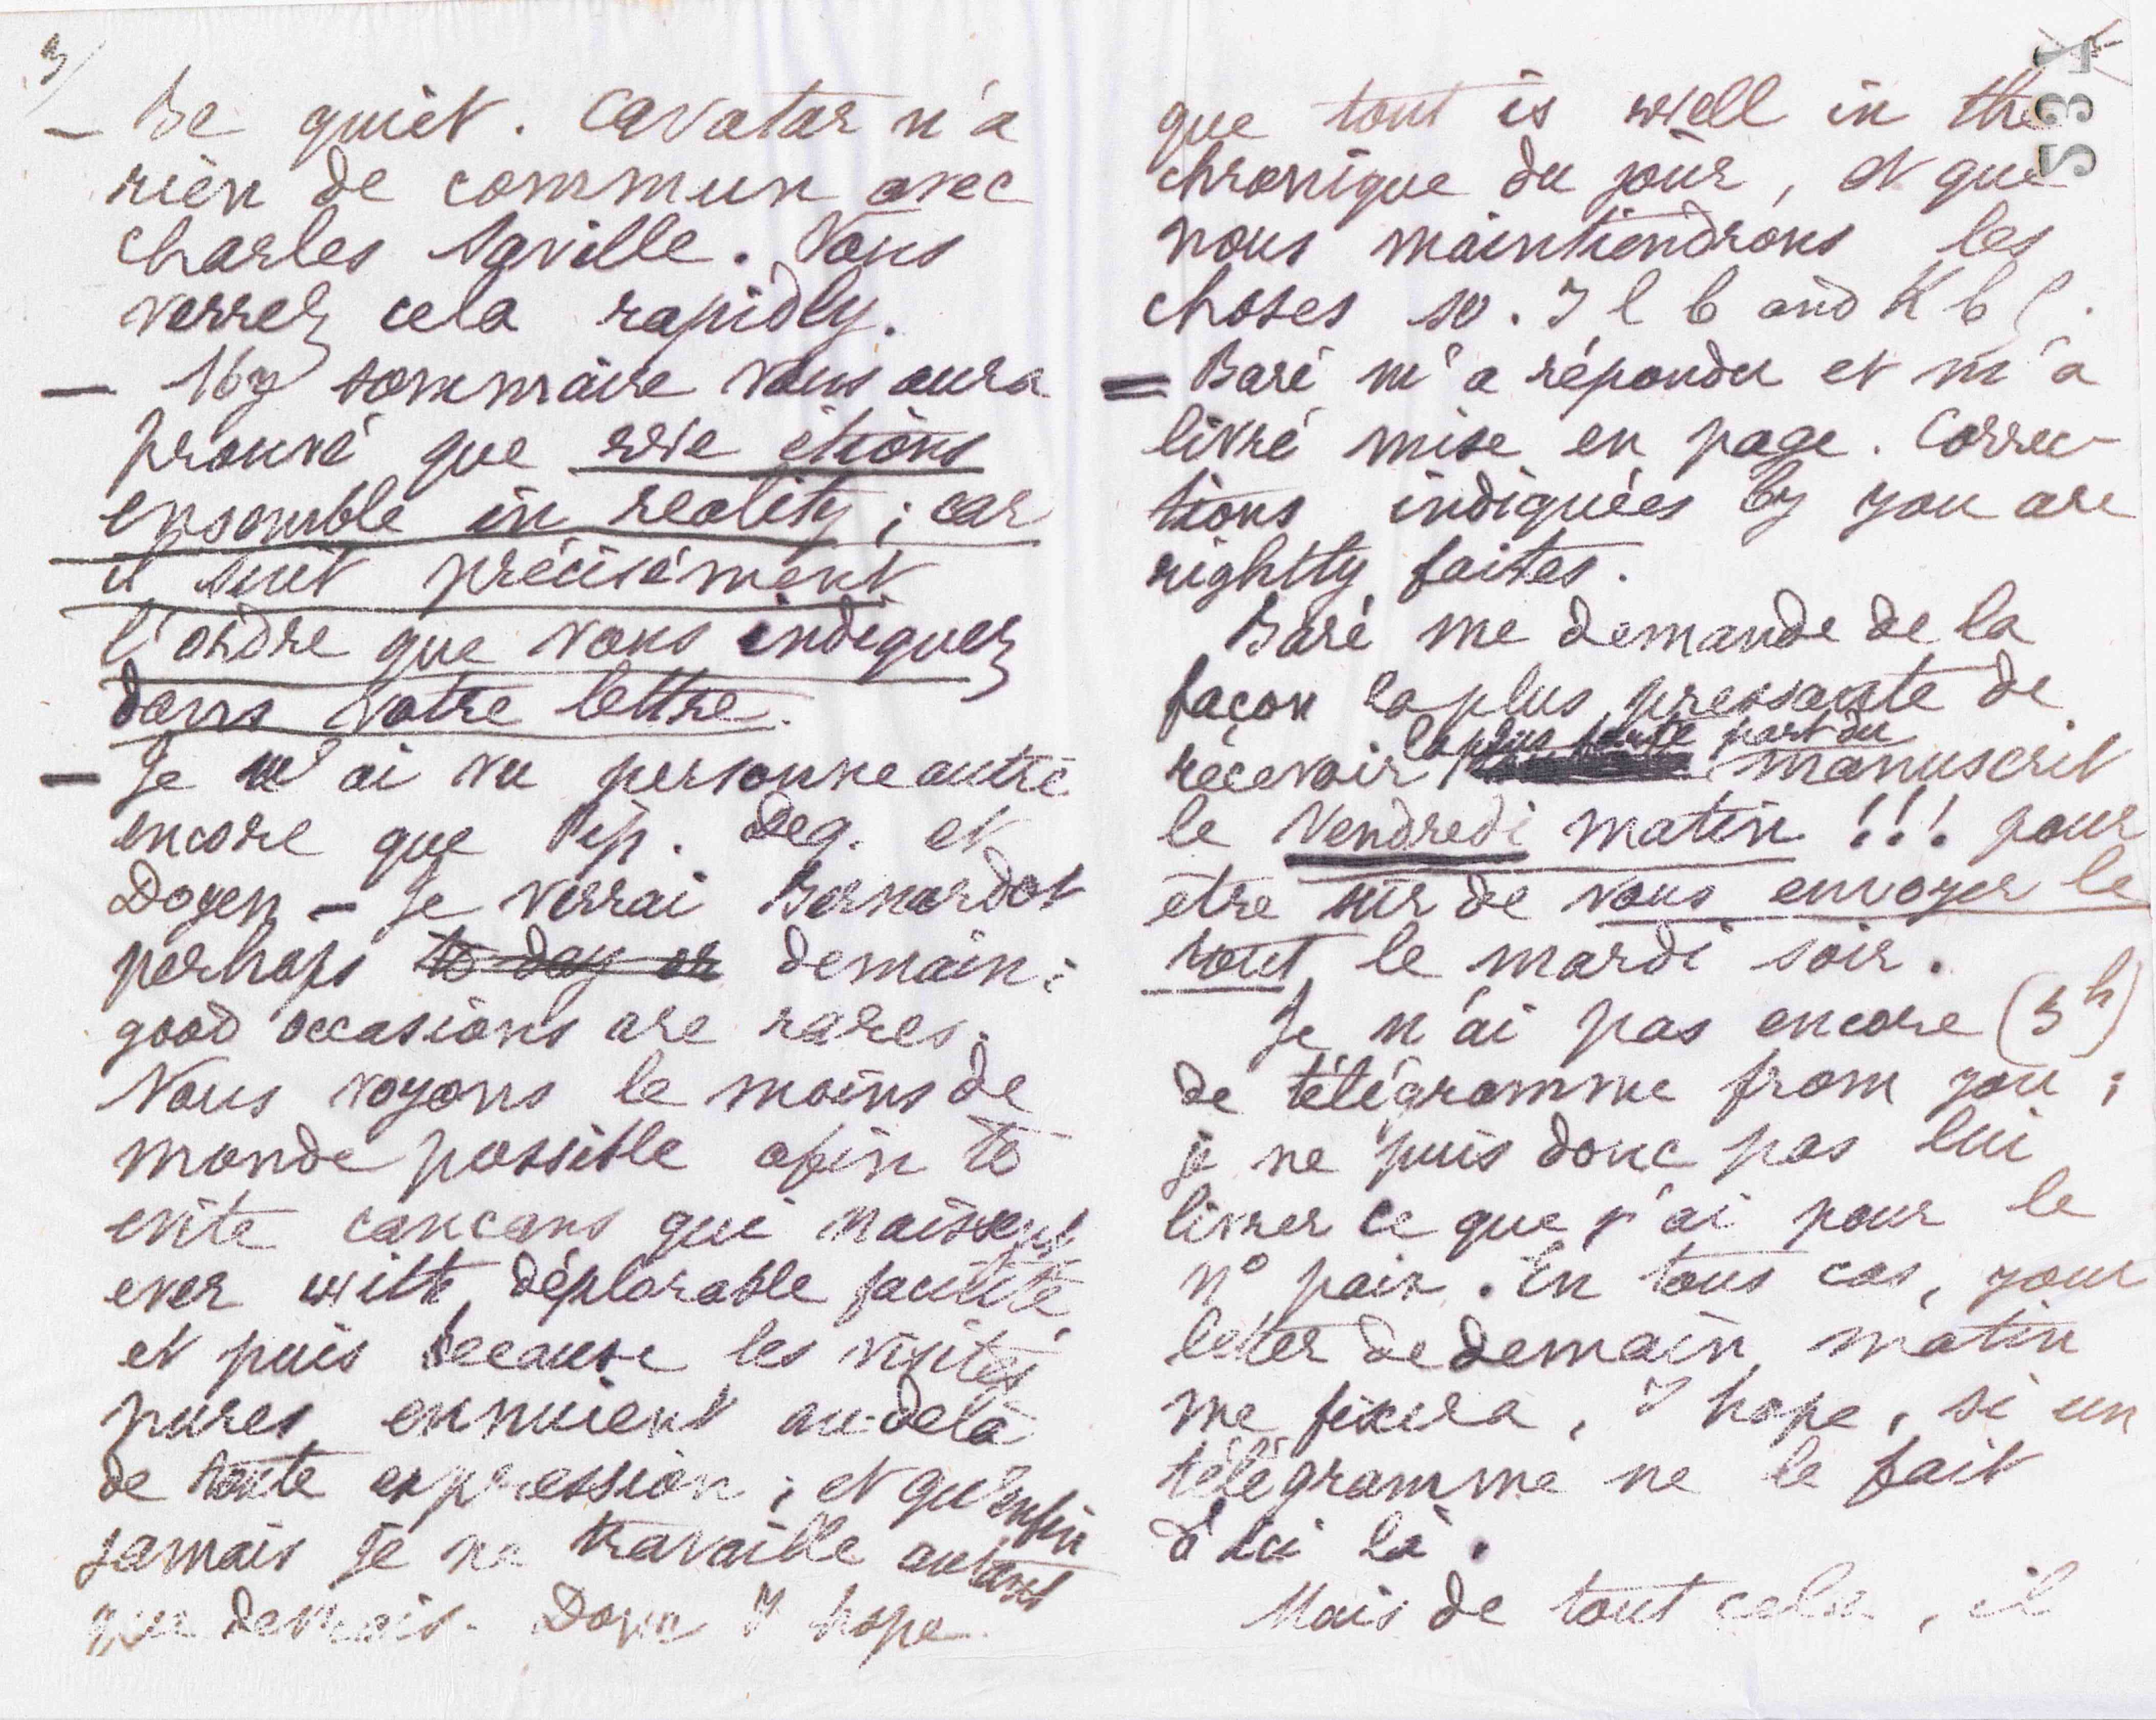 3/
– Be quiet. Cavatar n'a
rien de commun avec
Charles Saville. Vous
verrez cela rapidly.
– My sommaire vous aura
prouvé que we étions
ensemble in reality ; car
il suit précisément
l'ordre que vous indiquez
dans votre lettre.
– Je n'ai vu personne autre
encore que Pép. Deg. et
Doyen – Je verrai Bernardot
perhaps to day or demain :
good occasions are rares.
Nous voyons le moins de
monde possible afin to
évite cancans qui naissent
ever with déplorable facilité,
et puis because les visites
pures ennuient au-delà
de toute expression ; et qu'enfin
jamais je ne travaille autant
que devrais. Donc I hope
531
que tout is well in the
chronique du jour, et que
nous maintiendrons les
choses so. I l b and K b l.
= Baré m'a répondu et m'a
livré mise en page. Correc-
tions indiquées by you are
rightly faites.
Baré me demande de la
façon la plus pressante de
la plus forte part du
recevoir manuscrit
le Vendredi matin !!! pour
être sûr de vous envoyer le
tout le mardi soir.
Je n'ai pas encore (3h)
de télégramme from you ;
je ne puis donc pas lui
livrer ce que j'ai pour le
n° paix. En tous cas, your
letter de demain matin
me fixera, I hope, si un
télégramme ne le fait
d'ici là.
Mais de tout cela, il